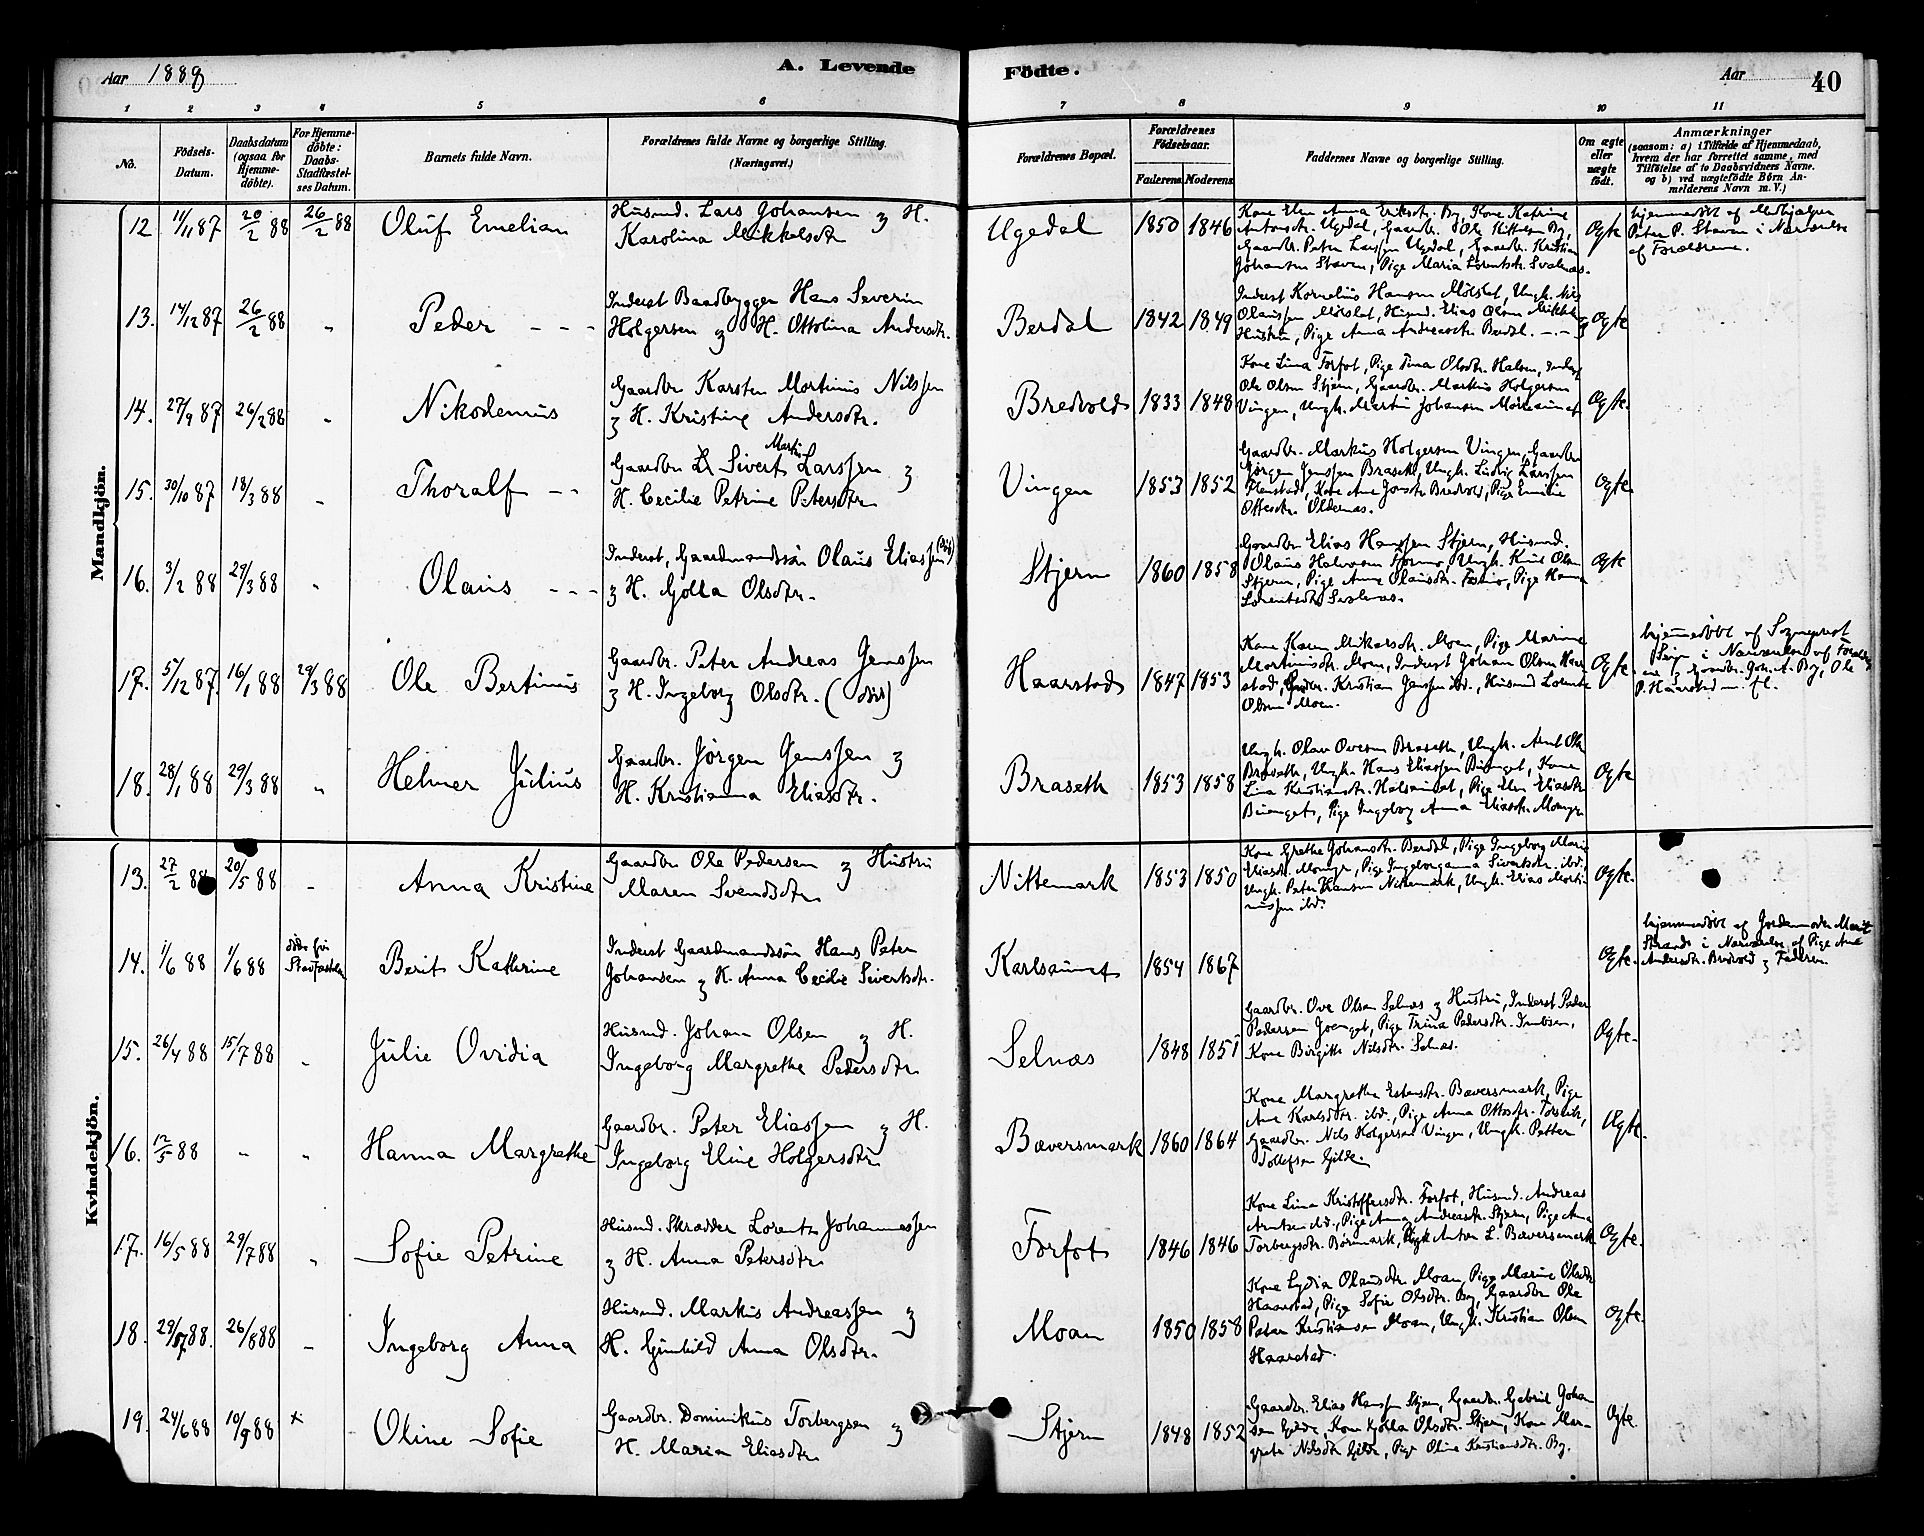 Aar 1888
A. Levende Födte.
Aar 40
1 2 3 4 5 6 7 8 9 10 11
No.
Födsels-Datum.
Daabsdatum (ogsaa for Hjemme-döbte).
For Hjemme-döbte: Daabs-Stadfæstel-ses Datum.
Barnets fulde Navn.
Forældrenes fulde Navne og borgerlige Stilling. (Næringsvei.)
Forældrenes Bopæl.
Forældrenes Födselsaar.
Faderens. Moderens.
Faddernes Navne og borgerlige Stilling.
Om ægte eller uægte födt.
Anmærkninger
(saasom: a) i Tilfælde af Hjemmedaab, hvem der har forrettet samme, med Tilföielse af to Daabsvidners Navne. og b) ved uægtefödte Börn An-melderens Navn m. V.)
Mandkjön.
12 11/11 87 20/2 88 26/2 88 Oluf Emelian
Husmd. Lars Johansen og H.
Karolina Mikkelsdtr
Ugedal 1850 1846
Kone Elen Anna Eriksdtr. By, Kone Katrine
Antonsdtr. Ugedal, Gaardbr. Ole Kittelsen By,
Gaardbr. Peter Larssen Ugedal, Gaardbr. Kristian
Johansen Staven, Pige Maria Lorentsdtr. Svalnæs.
Ægte
hjemmedöbt af Medhjælper
Peter P. Staven i Nærværelse
af Forældrene.
13. 14/12 87 26/2 88 " Peder - - -
Inderst Baadbygger Hans Severin
Holgersen og H. Ottolina Andersdtr.
Berdal 1842 1849
Inderst Kornelius Hansen Mölslet, Ungk. Nils
Olaussen Mölslet, Husmd. Elias Olsen og
Hustru, Pige Anna Andreasdtr. Berdal. -.-
Ægte
14. 27/9 87 26/2 88 " Nikodemus
Gaardbr Karsten Martinus Nilssen
og H. Kristine Andersdtr.
Bredvold 1833 1848
Kone Lina Forfot, Pige Tina Olsdtr. Halsen, Inderst
Ole Olsen Stjern, Gaardbr. Markus Holgersen
Vingen, Ungk. Martin Johansen
Ægte.
15. 30/10 87 18/3 88 " Thoralf - -
Martin
Gaardbr Sivert Larssen og
H. Cecilie Petrine Petersdtr.
Vingen 1853 1852
Gaardbr. Markus Holgersen Vingen, Gaardbr
Jörgen Jenssen Braseth, Ungk. Ludvig Larssen
Flenstad, Kone Ane Jonsdtr. Bredvold, Pige Emilie
Ottesdtr. Oldernæs.
Ægte.
16. 3/2 88 29/3 88 " Olaus - - -
Inderst, Gaardmandssön Olaus Eliassen (död)
og H. Golla Olsdtr.
Stjern 1860 1858
Gaardbr Elias Hanssen Stjern, Husmd.
Olaus Halvorsen Formo, Ungk. Knut Olsen
Stjern, Pige Anne Olausdtr. Formo, Pige Hanna
Lorentsdtr Svalnæs.
Ægte
17. 5/12 87. 16/1 88 29/3 88 Ole Bertinus
Gaardbr. Peter Andreas Jenssen
og H. Ingeborg Olsdtr. (död)
Haarstad 1847 1853
Kone Karen Mikalsdtr. Moen, Pige Marine
Martinusdtr. Moen, Inderst Johan Olsen Haar-
stad, Gaardbr. Kristian Jenssen ibd., Husmd Lorents
Olsen Moen.
Ægte.
hjemmedöbt af Sogneprest
i Nærværelse af Foræld-
rene og Gaardbr. Joh. A. By, Ole
P. Haarstad m. fl.
18. 28/1 88 29/3 88 " Helmer Julius
Gaardbr. Jörgen Jenssen og
H. Kristianna Eliasdtr.
Braseth 1853 1858
Ungk. Olav Ovesen Braseth, Ungk. Arnt Ols.
Braseth, Ungk. Hans Eliassen Buenget, Kone
Lina Kristiansdtr. Halsaunet, Pige Elen Eliasdtr
Buenget, Pige Ingeborg Anna Eliasdtr. Momyr
Ægte
Kvindekjön.
13. 27/2 88 20/5 88 " Anna Kristine
Gaardbr Ole Pedersen og Hustru
Maren Svendsdtr
Nittemark 1853 1850
Kone Grethe Johansdtr. Berdal, Pige Ingeborg Marie
Eliasdtr. Momyr, Pige Ingeborganna Sivertsdtr. ibd.
Ungk. Peter Hansen Nittemark, Ungk. Elias Marti-
nussen ibd.
Ægte.
14. 1/6 88 1/6 88 döde før Stadfæstelsen Berit Kathrine
Inderst Gaardmandssön Hans Peter
Johansen og H. Anna Cecilie Sivertsdtr.
Karlsaunet 1854 1867
Ægte.
hjemmedöbt af Jordemoder Marit
Strand i Nærværelse af Pige Ane
Andersdtr. Bredvold og Faderen.
15. 26/4 88 15/7 88 " Julie Ovidia
Husmd. Johan Olsen og H.
Ingeborg Margrethe Pedersdtr
Selnæs 1848 1851
Gaardbr. Ove Olsen Selnæs og Hustru, Inderst Peder
Pedersen Joenget, Pige Trina Pedersdtr.
Kone Birgitte Nilsdtr. Selnæs.
Ægte.
16. 12/5 88 " " Hanna Margrethe
Gaardbr. Peter Eliassen og H.
Ingeborg Eline Holgersdtr
Bæversmark 1860 1864
Kone Margrethe Estensdtr. Bæversmark, Pige
Ane Karlsdtr. ibd., Pige Anna Ottesdtr. Torsvik,
Gaardbr. Nils Holgersen Vingen, Ungk. Petter
Tollefsen Gjilde.
Ægte.
17. 16/5 88 29/7 88 " Sofie Petrine
Husmd. Skrædder Lorents Johannessen
og H. Anna Petersdtr.
Forfot 1846 1846
Kone Lina Kristoffersdtr. Forfot, Husmd. Andreas
Arntsen ibd., Pige Anna Andreasdtr. Stjern, Pige Anna
Torbergsdtr. Börmark, Ungk Anton L. Bæversmark
Ægte.
18. 29/5 88. 26/8 88 " Ingeborg Anna
Husmd. Markus Andreassen og
H. Gunhild Anna Olsdtr.
Moan 1850 1858
Kone Lydia Olausdtr Moan, Pige Marine Olsdtr
Haarstad, Pige Sofie Olsdtr. By, Gaardbr Ole
Peter Kristiansen Moan, Ungk. Kristian Olsen
Haarstad.
Ægte.
19. 24/6 88 10/9 88 x Oline Sofie
Gaardbr. Dominikus Torbergsen og
H. Maria Eliasdtr
Stjern 1848 1852
Gaardbr. Elias Hanssen Stjern, Gaardbr. Gabriel Johan-
sen Gjilde, Kone Golla Olsdtr. Stjern, Kone Mar-
grete Nilsdtr Gjilde, Pige Oline Kristiansdtr. By.
Ægte.